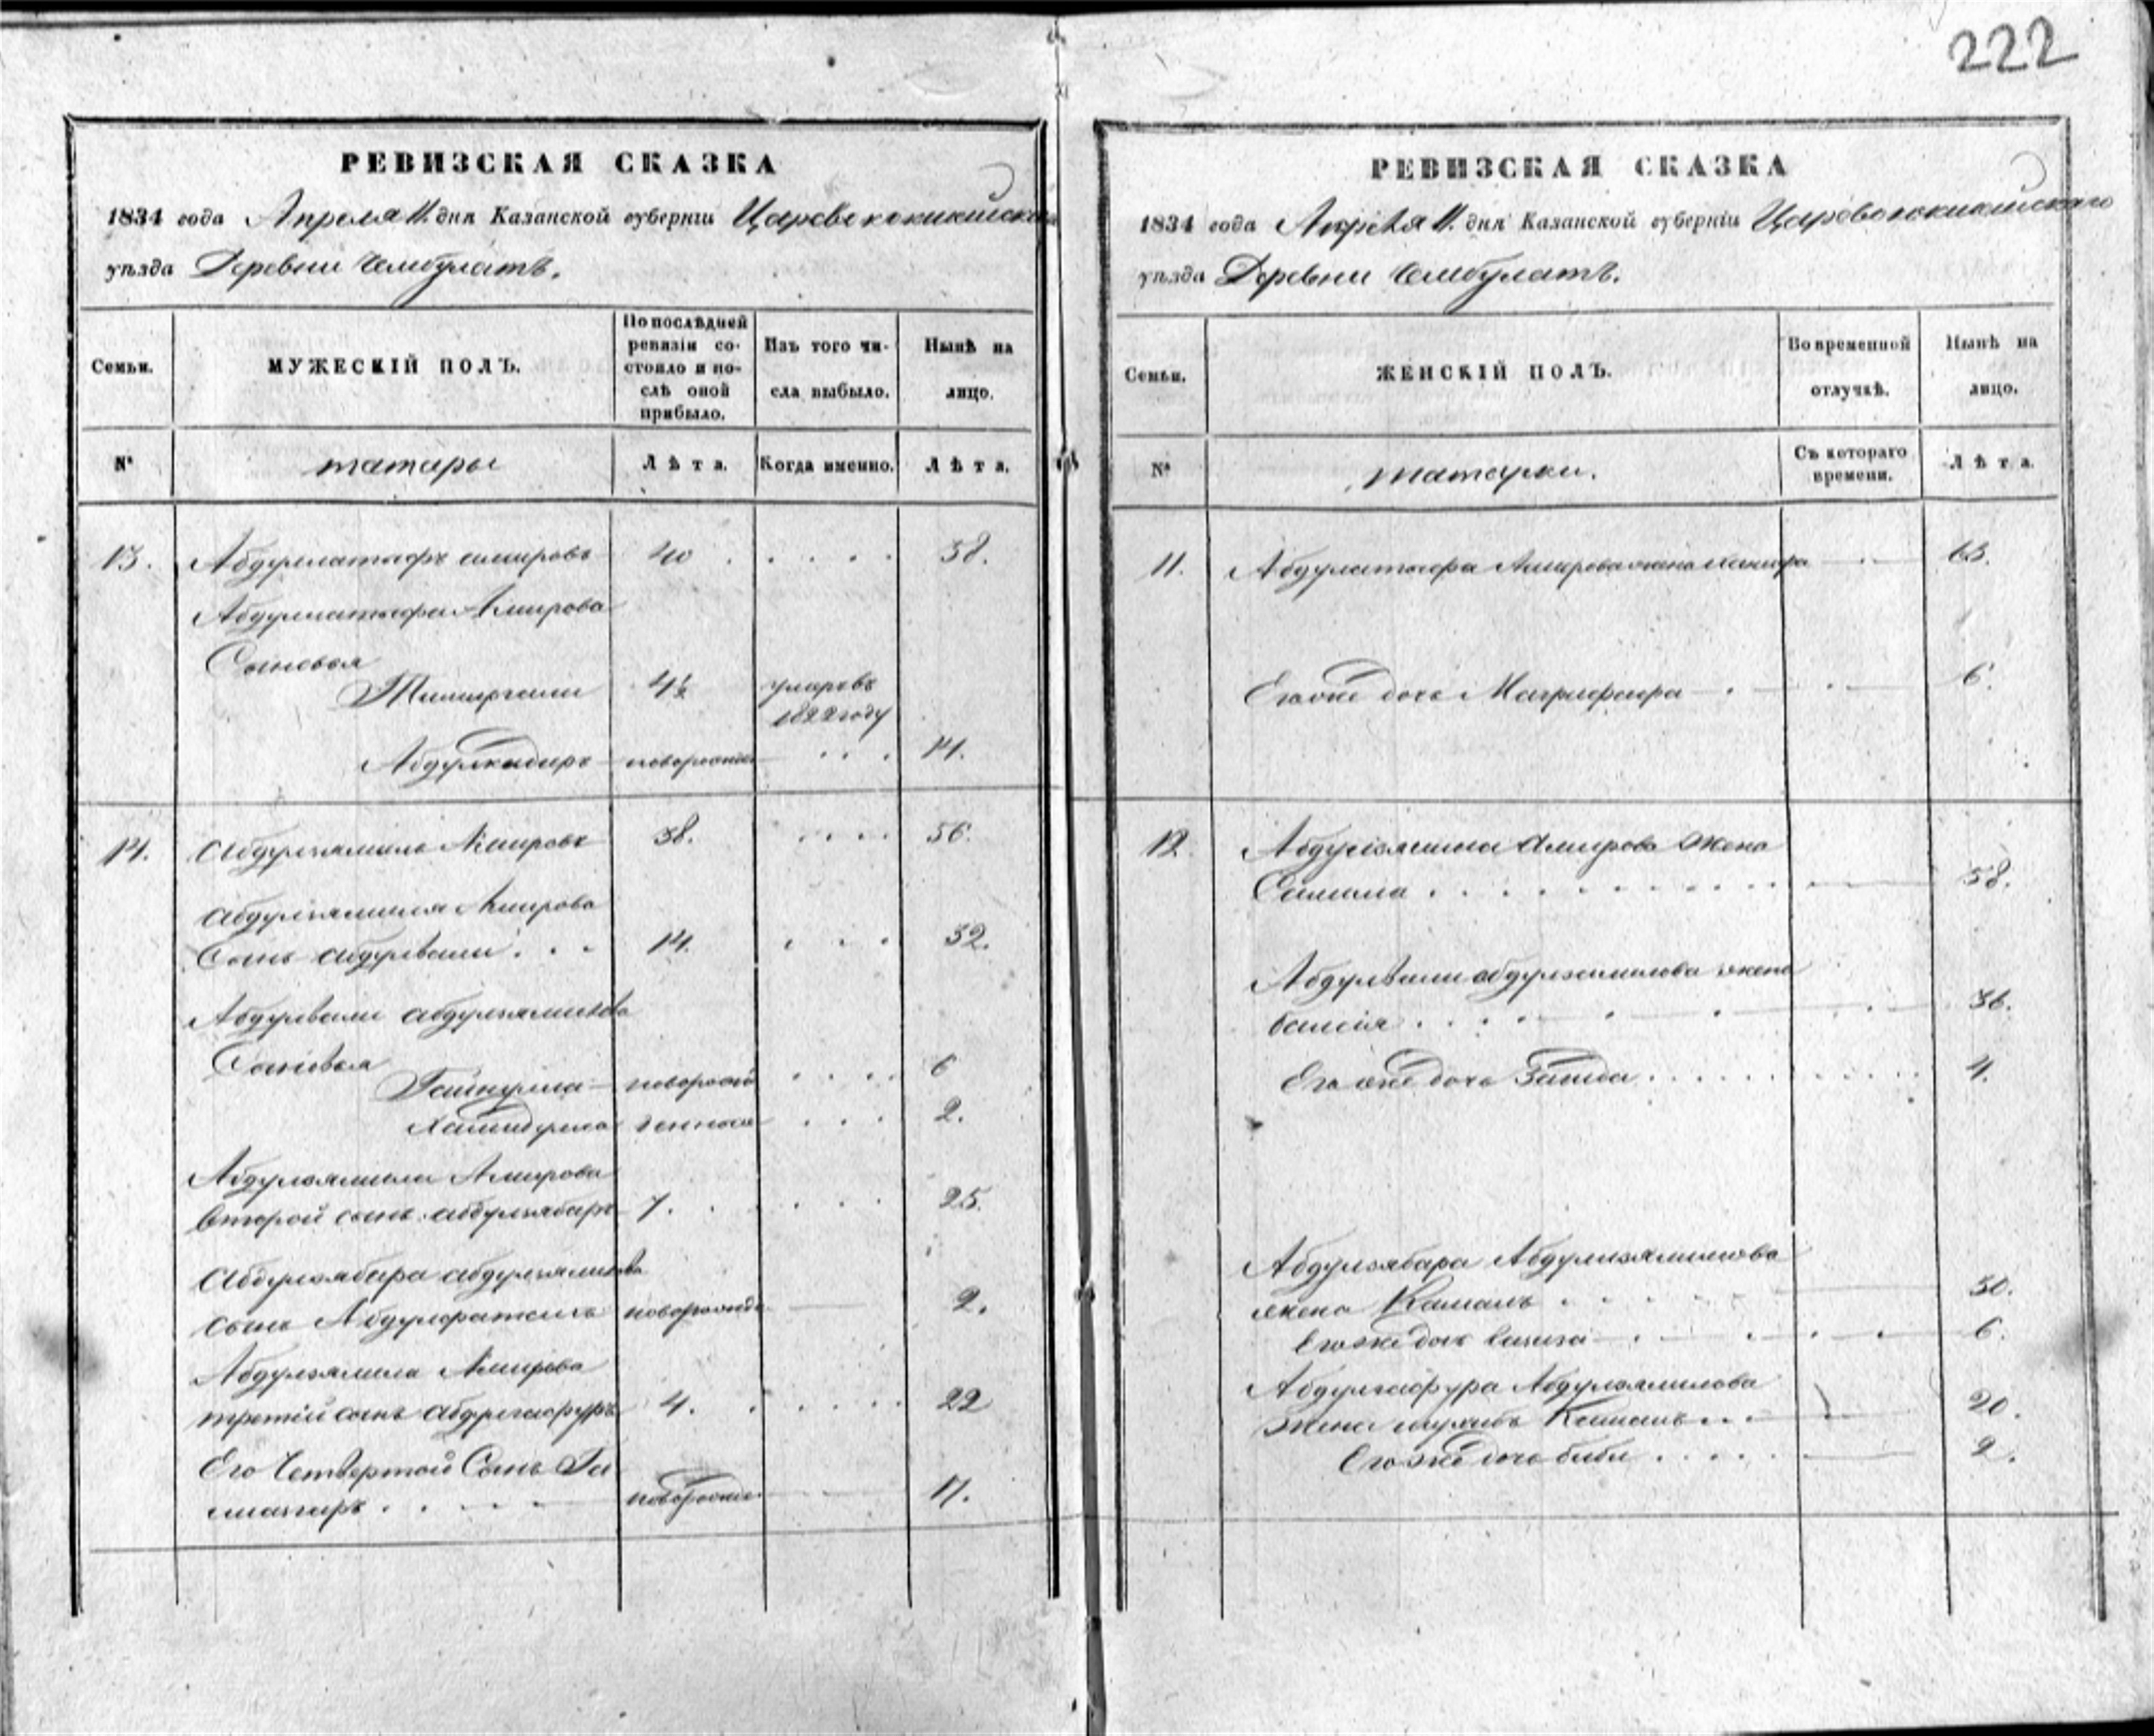 222
РЕВИЗСКАЯ СКАЗКА
1834 года Апреля 11. дня Казанской губерніи Царевококшайскаго
уѣзда Деревни Чембулатъ.
Семьи.
МУЖЕСКІЙ ПОЛЪ.
По послѣдней
ревизіи со-
стояло и по-
слѣ оной
прибыло.
Изъ того чи-
сла выбыло.
Нынѣ на
лицо.
№
татары
Лѣта.
Когда именно.
Лѣта.
13. Абдуллатифъ Амировъ 40 . . . . 58.
Абдуллатифа Амирова
Сыновья
4½ умеръ въ
1822 году
Абдулкадыръ новорожд . . . 14.
14. Абдулзямиль Амировъ 38. . . . . 56.
Абдулзямиля Амирова
Сынъ Абдулвали . . . 14. . . . 32.
Абдулвали Абдулзямилова
Сыновья
Гайнулла новорож . . . . 6
Хамидулла денные . . . 2.
Абдулзямиля Амирова
второй сынъ Абдулзябаръ 7. . . . . 25.
Абдулзябара Абдулзямилова
сынъ новорожд 2.
Абдулзямиля Амирова
третій сынъ Абдулгафуръ 4. . . . . . 22
Его Четвертой Сынъ Ги
новорожд 17.
РЕВИЗСКАЯ СКАЗКА
1834 года Апрѣля 11. дня Казанской губерніи Царевококшайскаго
уѣзда Деревни Чембулатъ.
Семьи.
ЖЕНСКІЙ ПОЛЪ.
Во временной
отлучкѣ.
Нынѣ на
лицо.
№
татарки.
Съ котораго
времени.
Лѣта.
11. Абдулатифа Амирова жена 63.
Его же дочь 6.
12. Абдулзямиля Амирова жена
Салима . . . . . . . . . 58.
Абдулвали Абдулзямилова жена
36.
Его же дочь Заида . . . . . . . . . 4.
Абдулзябара Абдулзямилова
жена Камаль . . . . 30.
Его же дочь 6.
Абдулгафура Абдулзямилова
жена Камаль . . . 20.
Его же дочь Биби . . . . . 2.